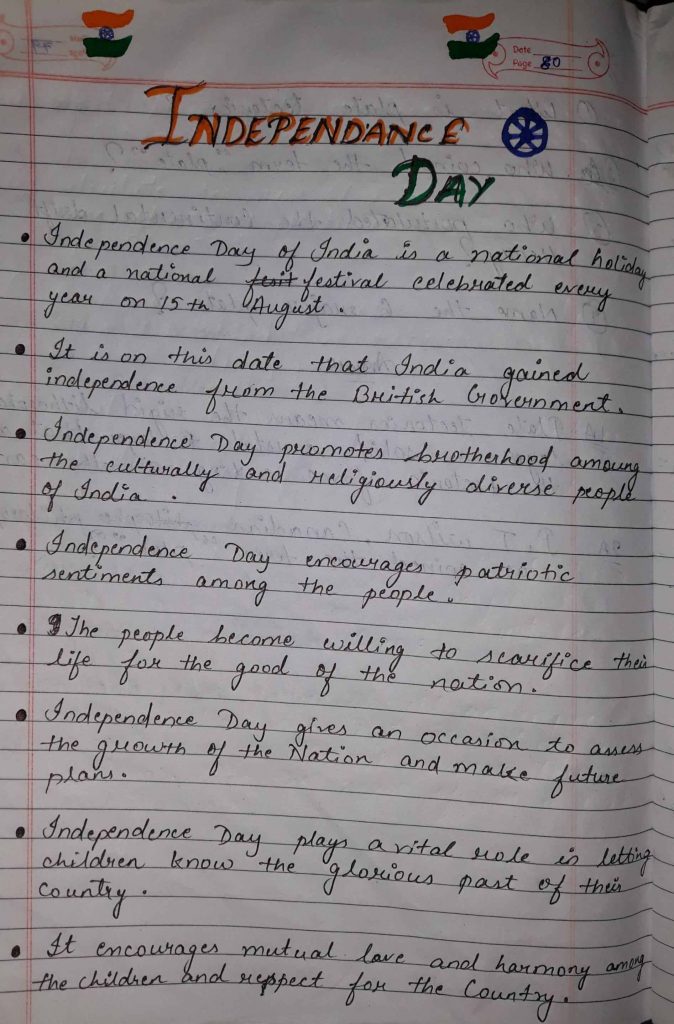 Date
Page 80
INDEPENDANCE
DAY
• Independence Day of India is a national holiday
and a national fesit festival celebrated every
year on 15th August.
• It is on this date that India gained
independence from the British Government.
• Independence Day promotes brotherhood amoung
the culturally and religiously diverse people
of India.
• Independence Day encourages patriotic
sentiments among the people.
• The people become willing to scarifice their
life for the good of the nation.
• Independence Day gives an occasion to assess
the growth of the Nation and make future
plans.
• Independence Day plays a vital role in letting
children know the glorious past of their
Country.
• It encourages mutual love and harmony among
the children and reppect for the Country.